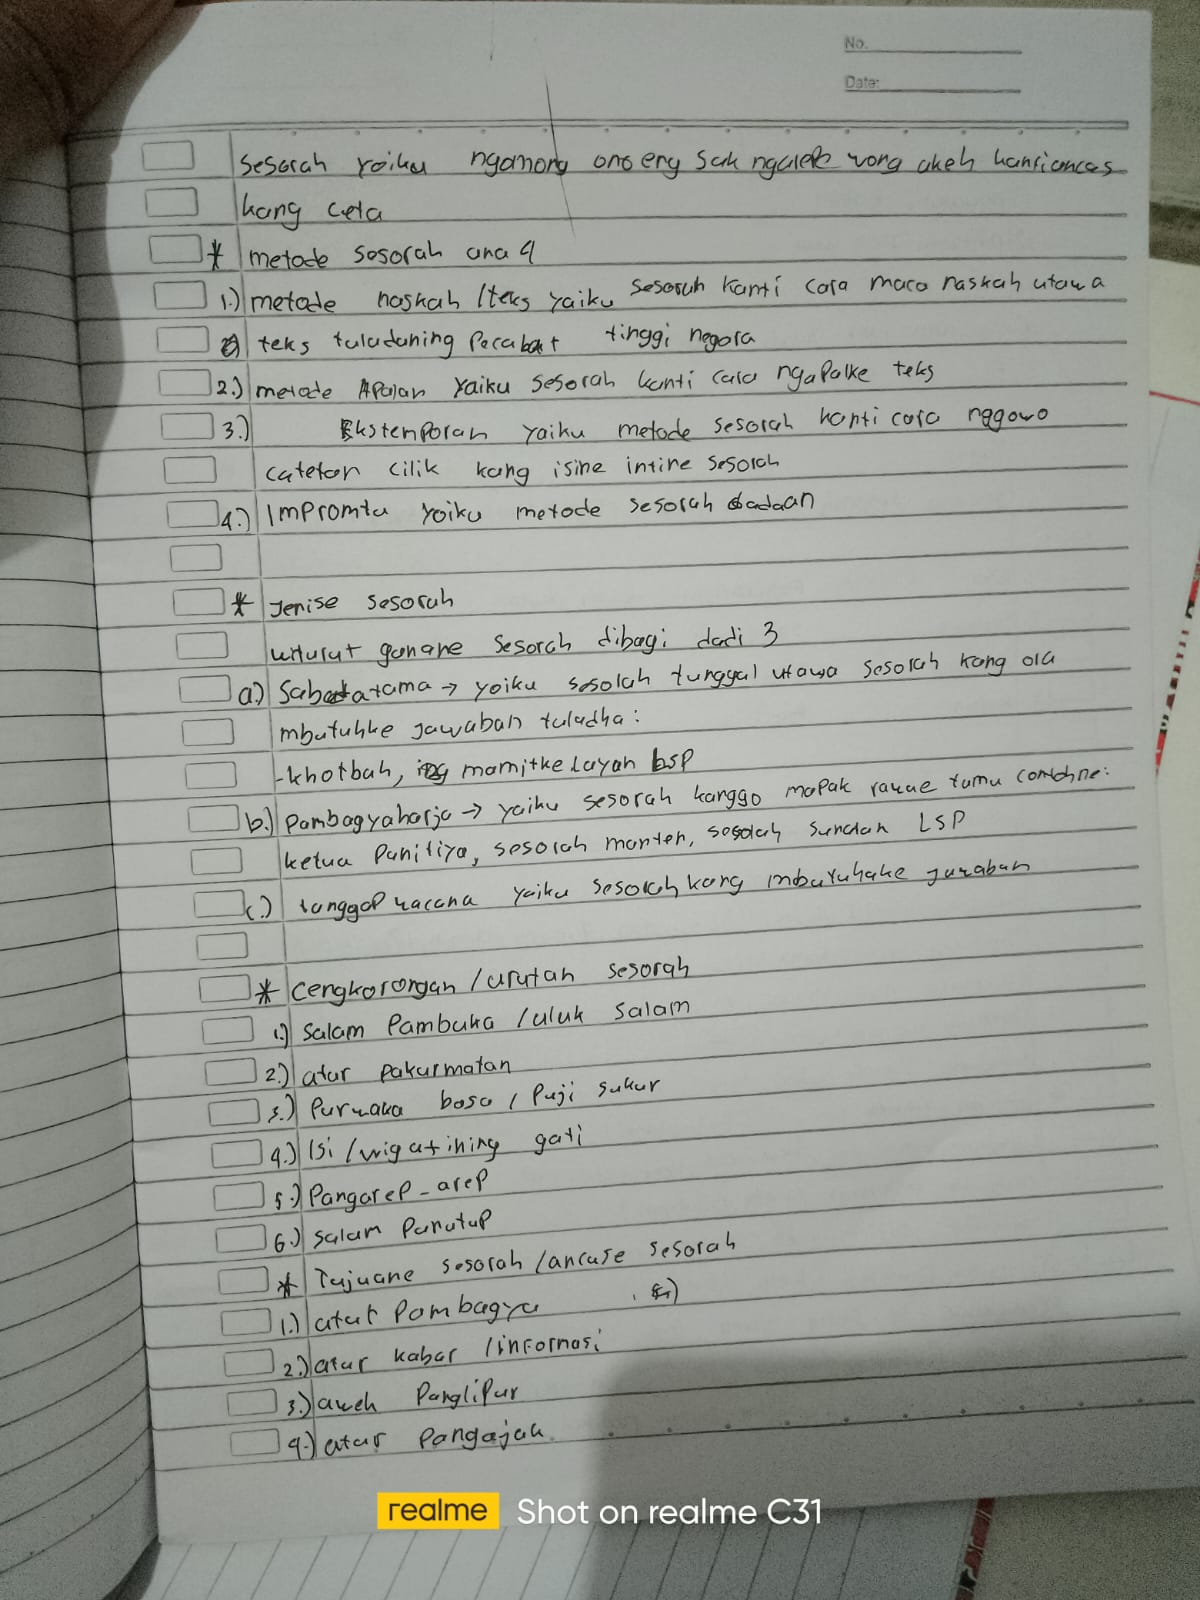 No.
Date:
sesorah yoiku ngomong ono eng sak ngarepe wong akeh kanti ancas
kang ceta
* metode sesorah ana 4
1.) metode naskah / teks yaiku sesorah kanti cara maca naskah utawa
teks tuladuning Pecabat tinggi negara
2.) metode Apalan yaiku sesorah kanti cara ngapalke teks
3.) Ekstemporan yaiku metode sesorah kanti cara nggowo
catetan cilik kang isine intine sesorah
4.) Impromtu yoiku metode sesorah dadaan
* Jenise sesorah
urturut gunane sesorah dibagi dadi 3
a.) Sabdatama → yoiku sesorah tunggal utawa sesorah kang ora
mbutuhke jawaban tuladha:
- khotbah, ing mamitke layah lsp
b.) Pambagyaharja → yaiku sesorah kanggo mapak rawue tamu contohne:
ketua Panitiya, sesorah manten, sesolah sunatan LSP
c.) tanggap wacana yaiku sesorah kang mbutuhake jawaban
* Cengkorongan / urutan sesorah
1.) Salam Pambuka / uluk salam
2.) atur pakurmatan
3.) Purwaka basa / Puji sukur
4.) Isi / wigatining gati
5.) Pangarep-arep
6.) salam Panutup
* Tujuane sesorah / ancase sesorah
1.) atur Pambagya
2.) atur kabar / informasi
3.) aweh Panglipur
4.) atur Pangajak
realme Shot on realme C31